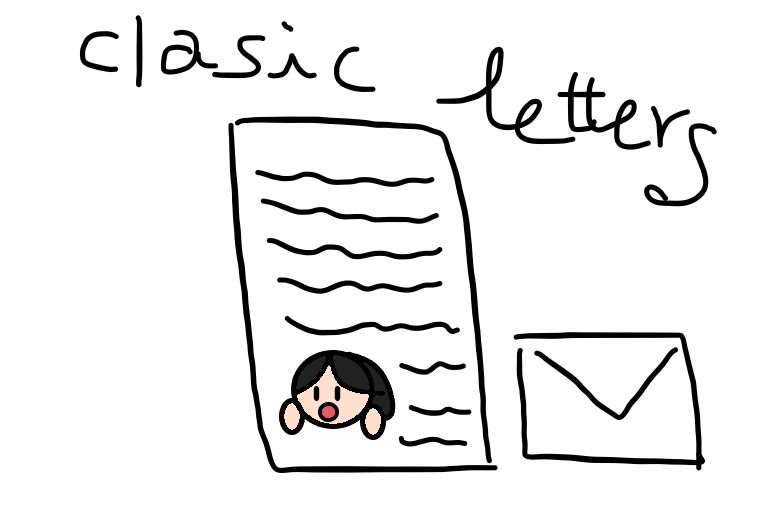 clasic letters